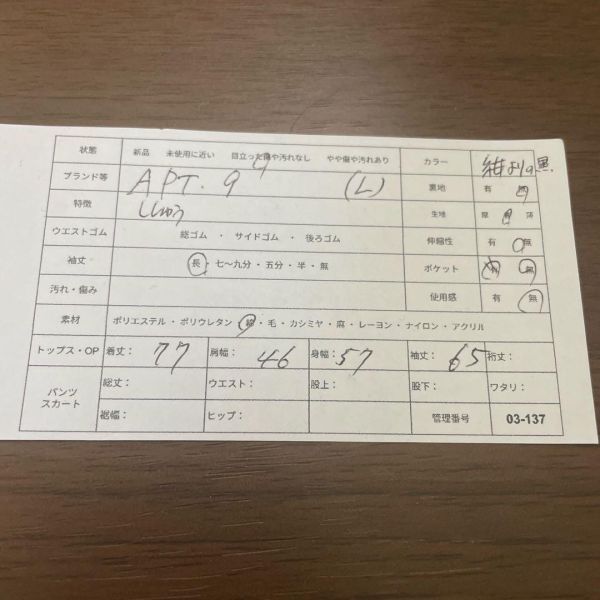 状態 新品 未使用に近い 目立った傷や汚れなし やや傷や汚れあり カラー 紺よりの黒
ブランド等 APT.9 (L) 裏地 有 無
特徴 ししゅう 生地 厚 普 薄
ウエストゴム 総ゴム ・ サイドゴム ・ 後ろゴム 伸縮性 有 無
袖丈 長・七〜九分・五分・半・無 ポケット 有 無
汚れ・傷み 使用感 有 無
素材 ポリエステル・ポリウレタン・綿・毛・カシミヤ・麻・レーヨン・ナイロン・アクリル
トップス・OP 着丈：77 肩幅：46 身幅：57 袖丈：65 裄丈：
パンツ スカート 総丈： ウエスト： 股上： 股下： ワタリ：
裾幅： ヒップ： 管理番号 03-137